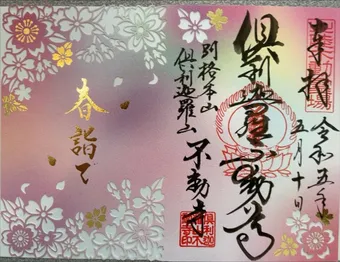 奉拝
令和五年
五月十日
倶利迦羅不動尊
別格本山
倶利迦羅山
不動寺
春詣で